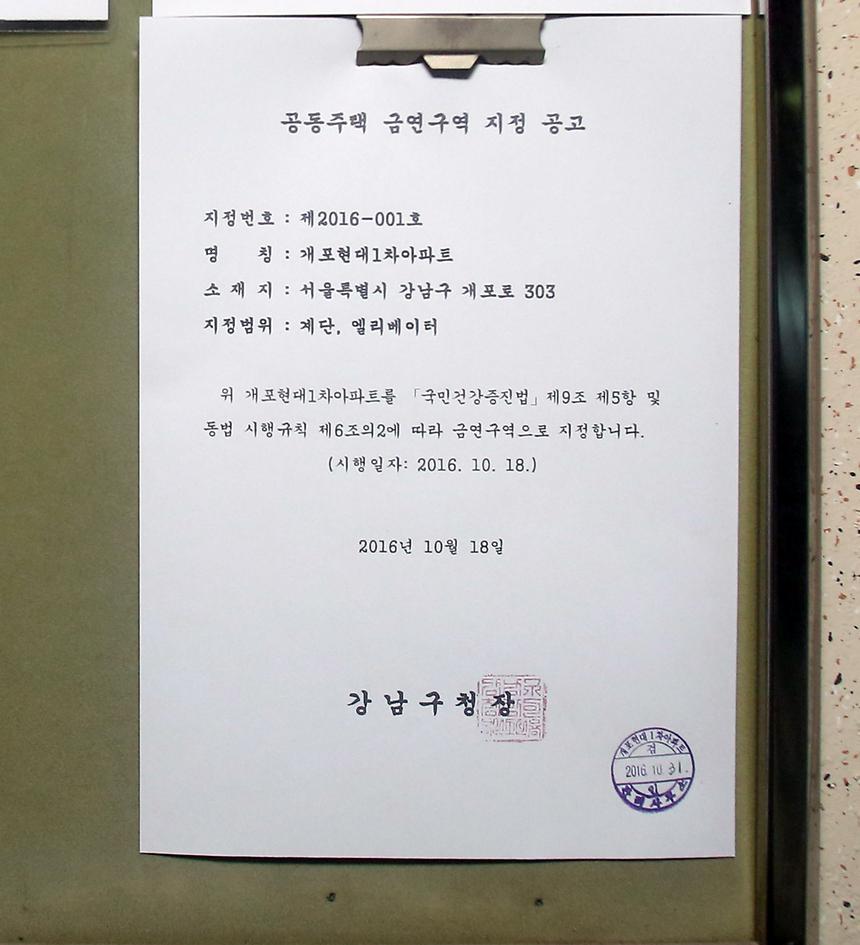 공동주택 금연구역 지정 공고
지정번호 : 제2016-001호
명 칭 : 개포현대1차아파트
소 재 지 : 서울특별시 강남구 개포로 303
지정범위 : 계단, 엘리베이터
위 개포현대1차아파트를 「국민건강증진법」제9조 제5항 및
동법 시행규칙 제6조의2에 따라 금연구역으로 지정합니다.
(시행일자: 2016. 10. 18.)
2016년 10월 18일
강남구청장
개포현대1차아파트
검
2016. 10. 31.
인
관리사무소